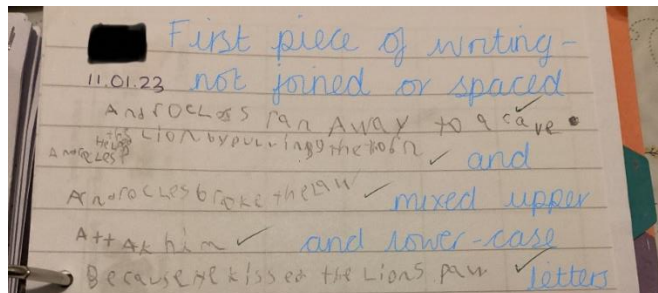 First piece of writing-
11.01.23 not joined or spaced
AndroCLess ran AwAy to a cave.
the
AndrocLes HeLped Lion by puLLing the torn and
AndrocLes broke the LAW mixed upper
Att Ak him and lower-case
Because he kissed the Lions paw letters